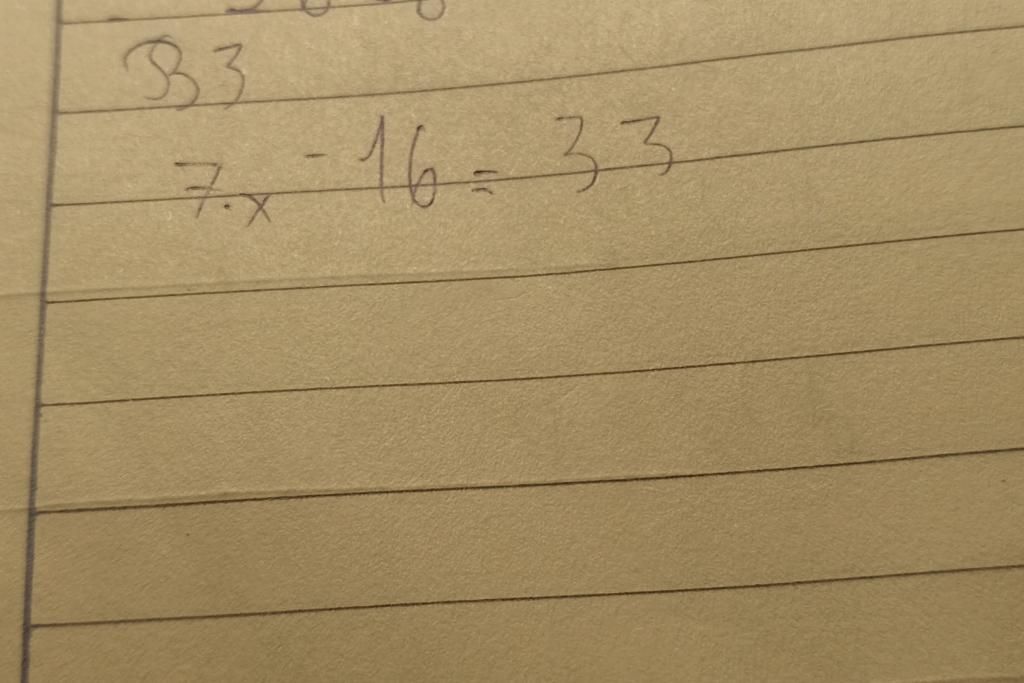 B3
7.x - 16 = 33